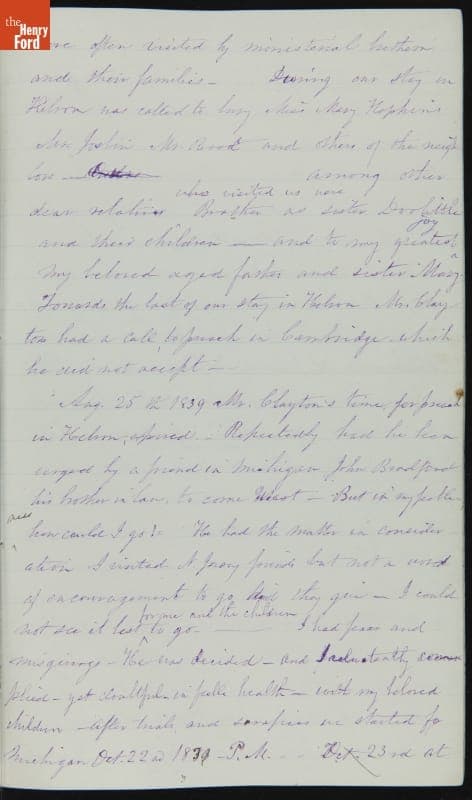 the
Henry
Ford
were often visited by ministerial brethren
and their families – During our stay in
Nelson was called to bury Miss Mary Hopkins
Mrs Joslin Mr. Brood and others of the neigh
bors – among other
who visited us were
dear relatives Brother & sister Doolittle
joy
and their children — and to my greatest
my beloved aged father and sister Mary
Towards the last of our stay in Nelson Mr. Clay
ton had a call to preach in Cambridge which
he did not accept –
Aug. 25th 1839 Mr. Clayton's time for preach
in Nelson, expired. Repeatedly had he been
urged by a friend in Michigan John Bradford
his brother in law, to come West – But in my feeble
ness
how could I go? – He had the matter in consider
ation I visited N Jersey friends but not a word
of encouragement to go, did they give – I could
for me and the children
not see it best to go. — I had fears and
misgivings – He was decided – and I reluctantly, com
plied – yet doubtful in feeble health – with my beloved
children – after trials, and sacrifices we started for
Michigan Oct. 22nd 1839 – P.M. – Oct. 23rd at